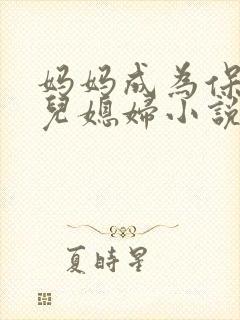 妈妈成為保
兒媳婦小說
夏時星